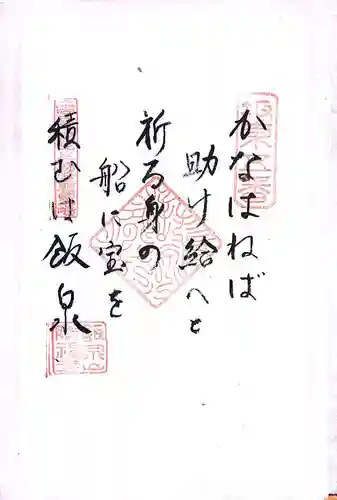 かなはねば
助け給へと
祈る身の
船に宝を
積むは飯泉